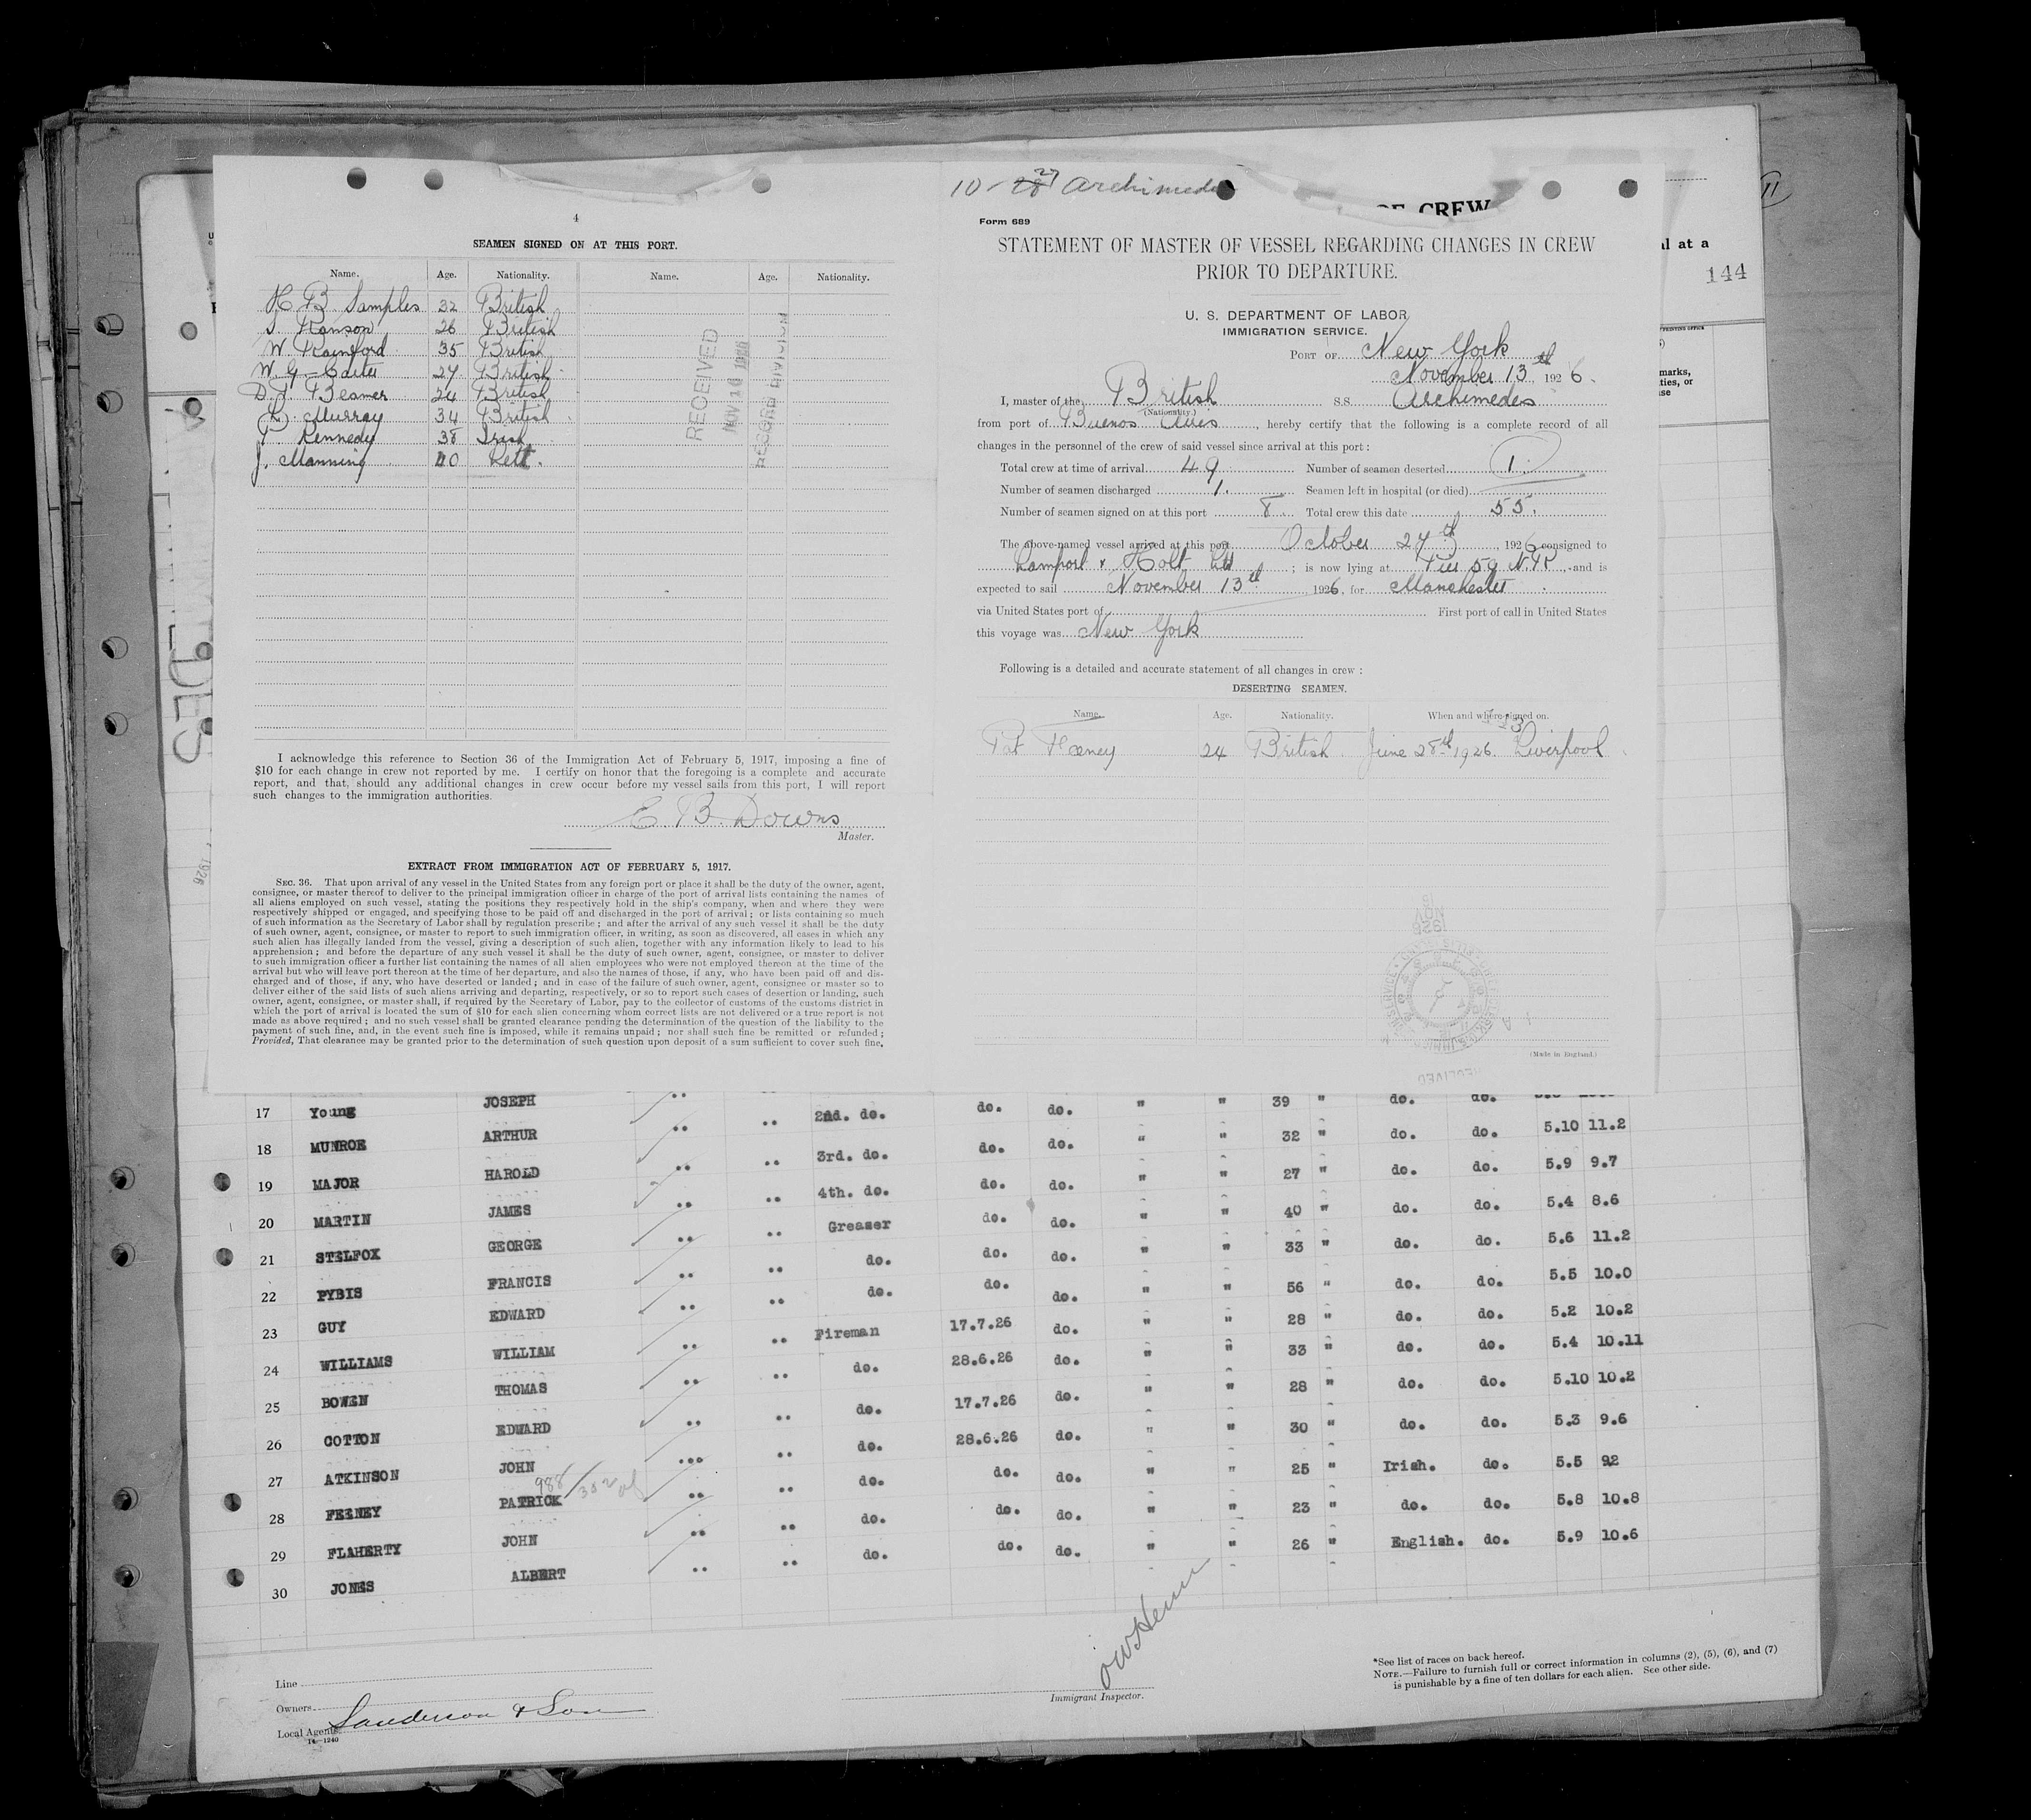 4
SEAMEN SIGNED ON AT THIS PORT.
Name. Age. Nationality. Name. Age. Nationality.
H B Samples 32 British
J. Ranson 26 British
W. Rainford 35 British
W. G. Carter 27 British
D. J. Beamer 24 British
D. Murray 34 British
T. Kennedy 38 Irish
J. Manning 40 Lett.
RECEIVED
NOV 16 1926
RECORD DIVISION
I acknowledge this reference to Section 36 of the Immigration Act of February 5, 1917, imposing a fine of
$10 for each change in crew not reported by me. I certify on honor that the foregoing is a complete and accurate
report, and that, should any additional changes in crew occur before my vessel sails from this port, I will report
such changes to the immigration authorities.
C. B. Downs
Master.
EXTRACT FROM IMMIGRATION ACT OF FEBRUARY 5, 1917.
SEC. 36. That upon arrival of any vessel in the United States from any foreign port or place it shall be the duty of the owner, agent,
consignee, or master thereof to deliver to the principal immigration officer in charge of the port of arrival lists containing the names of
all aliens employed on such vessel, stating the positions they respectively hold in the ship's company, when and where they were
respectively shipped or engaged, and specifying those to be paid off and discharged in the port of arrival; or lists containing so much
of such information as the Secretary of Labor shall by regulation prescribe; and after the arrival of any such vessel it shall be the duty
of such owner, agent, consignee, or master to report to such immigration officer, in writing, as soon as discovered, all cases in which any
such alien has illegally landed from the vessel, giving a description of such alien, together with any information likely to lead to his
apprehension; and before the departure of any such vessel it shall be the duty of such owner, agent, consignee, or master to deliver
to such immigration officer a further list containing the names of all alien employees who were not employed thereon at the time of the
arrival but who will leave port thereon at the time of her departure, and also the names of those, if any, who have been paid off and dis-
charged and of those, if any, who have deserted or landed; and in case of the failure of such owner, agent, consignee or master so to
deliver either of the said lists of such aliens arriving and departing, respectively, or so to report such cases of desertion or landing, such
owner, agent, consignee, or master shall, if required by the Secretary of Labor, pay to the collector of customs of the customs district in
which the port of arrival is located the sum of $10 for each alien concerning whom correct lists are not delivered or a true report is not
made as above required; and no such vessel shall be granted clearance pending the determination of the question of the liability to the
payment of such fine, and, in the event such fine is imposed, while it remains unpaid; nor shall such fine be remitted or refunded;
Provided, That clearance may be granted prior to the determination of such question upon deposit of a sum sufficient to cover such fine.
10-28 27 Archimedes
OF CREW
al at a
144
11
Form 689
STATEMENT OF MASTER OF VESSEL REGARDING CHANGES IN CREW
PRIOR TO DEPARTURE.
U. S. DEPARTMENT OF LABOR
IMMIGRATION SERVICE.
PORT OF New York
November 13th 1926.
I, master of the British S.S. Archimedes
(Nationality.)
from port of Buenos Aires, hereby certify that the following is a complete record of all
changes in the personnel of the crew of said vessel since arrival at this port:
Total crew at time of arrival 49 Number of seamen deserted 1.
Number of seamen discharged 1. Seamen left in hospital (or died)
Number of seamen signed on at this port 8. Total crew this date 55.
The above-named vessel arrived at this port October 27th, 1926 consigned to
Lamport & Holt Ltd; is now lying at Pier 59 N.R. and is
expected to sail November 13th 1926, for Manchester.
via United States port of First port of call in United States
this voyage was New York
Following is a detailed and accurate statement of all changes in crew:
DESERTING SEAMEN.
Name. Age. Nationality. When and where signed on.
Pat Feeney 24 British June 28th 1926. Liverpool
(Made in England.)
17 Young JOSEPH 2nd. do. do. do. " " 39 " do. do.
18 MUNROE ARTHUR 3rd. do. do. do. " " 32 " do. do. 5.10 11.2
19 MAJOR HAROLD 4th. do. do. do. " " 27 " do. do. 5.9 9.7
20 MARTIN JAMES Greaser do. do. " " 40 " do. do. 5.4 8.6
21 STELFOX GEORGE do. do. do. " " 33 " do. do. 5.6 11.2
22 PYBIS FRANCIS do. do. do. " " 56 " do. do. 5.5 10.0
23 GUY EDWARD Fireman 17.7.26 do. " " 28 " do. do. 5.2 10.2
24 WILLIAMS WILLIAM do. 28.6.26 do. " " 33 " do. do. 5.4 10.11
25 BOWEN THOMAS do. 17.7.26 do. " " 28 " do. do. 5.10 10.2
26 COTTON EDWARD do. 28.6.26 do. " " 30 " do. do. 5.3 9.6
27 ATKINSON JOHN do. do. do. " " 25 " Irish. do. 5.5 92
28 FEENEY PATRICK do. do. do. " " 23 " do. do. 5.8 10.8
29 FLAHERTY JOHN do. do. do. " " 26 " English. do. 5.9 10.6
30 JONES ALBERT
Line
Owners
Local Agents Sanderson & Son
14-1240
Immigrant Inspector.
*See list of races on back hereof.
NOTE.—Failure to furnish full or correct information in columns (2), (5), (6), and (7)
is punishable by a fine of ten dollars for each alien. See other side.